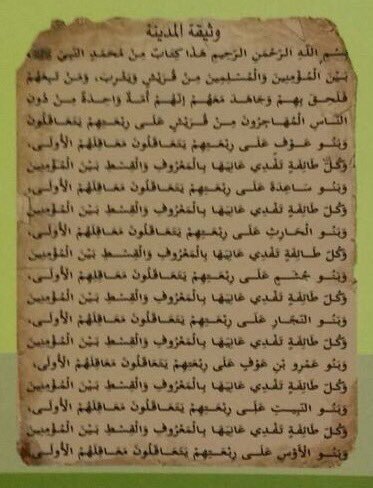 وثيقة المدينة
بسم الله الرَّحْمَنِ الرَّحِيمِ هَذَا كِتَابٌ مِنْ مُحَمَّدٍ النَّبِيِّ ﷺ
بَيْنَ الْمُؤْمِنِينَ وَالْمُسْلِمِينَ مِنْ قُرَيْشٍ وَيَثْرِبَ، وَمَنْ تَبِعَهُمْ
فَلَحِقَ بِهِمْ وَجَاهَدَ مَعَهُمْ إِنَّهُمْ أُمَّةٌ وَاحِدَةٌ مِنْ دُونِ
النَّاسِ الْمُهَاجِرُونَ مِنْ قُرَيْشٍ عَلَى رِبْعَتِهِمْ يَتَعَاقَلُونَ
وَبَنُو عَوْفٍ عَلَى رِبْعَتِهِمْ يَتَعَاقَلُونَ مَعَاقِلَهُمْ الْأُولَى،
وَكُلُّ طَائِفَةٍ تَفْدِي عَانِيَهَا بِالْمَعْرُوفِ وَالْقِسْطِ بَيْنَ الْمُؤْمِنِينَ
وَبَنُو سَاعِدَةَ عَلَى رِبْعَتِهِمْ يَتَعَاقَلُونَ مَعَاقِلَهُمْ الْأُولَى،
وَكُلُّ طَائِفَةٍ تَفْدِي عَانِيَهَا بِالْمَعْرُوفِ وَالْقِسْطِ بَيْنَ الْمُؤْمِنِينَ
وَبَنُو الْحَارِثِ عَلَى رِبْعَتِهِمْ يَتَعَاقَلُونَ مَعَاقِلَهُمْ الْأُولَى،
وَكُلُّ طَائِفَةٍ تَفْدِي عَانِيَهَا بِالْمَعْرُوفِ وَالْقِسْطِ بَيْنَ الْمُؤْمِنِينَ
وَبَنُو جُشَمٍ عَلَى رِبْعَتِهِمْ يَتَعَاقَلُونَ مَعَاقِلَهُمْ الْأُولَى،
وَكُلُّ طَائِفَةٍ تَفْدِي عَانِيَهَا بِالْمَعْرُوفِ وَالْقِسْطِ بَيْنَ الْمُؤْمِنِينَ
وَبَنُو النَّجَّارِ عَلَى رِبْعَتِهِمْ يَتَعَاقَلُونَ مَعَاقِلَهُمْ الْأُولَى،
وَكُلُّ طَائِفَةٍ تَفْدِي عَانِيَهَا بِالْمَعْرُوفِ وَالْقِسْطِ بَيْنَ الْمُؤْمِنِينَ
وَبَنُو عَمْرِو بْنِ عَوْفٍ عَلَى رِبْعَتِهِمْ يَتَعَاقَلُونَ مَعَاقِلَهُمْ الْأُولَى،
وَكُلُّ طَائِفَةٍ تَفْدِي عَانِيَهَا بِالْمَعْرُوفِ وَالْقِسْطِ بَيْنَ الْمُؤْمِنِينَ
وَبَنُو النَّبِيتِ عَلَى رِبْعَتِهِمْ يَتَعَاقَلُونَ مَعَاقِلَهُمْ الْأُولَى،
وَكُلُّ طَائِفَةٍ تَفْدِي عَانِيَهَا بِالْمَعْرُوفِ وَالْقِسْطِ بَيْنَ الْمُؤْمِنِينَ
وَبَنُو الْأَوْسِ عَلَى رِبْعَتِهِمْ يَتَعَاقَلُونَ مَعَاقِلَهُمْ الْأُولَى،